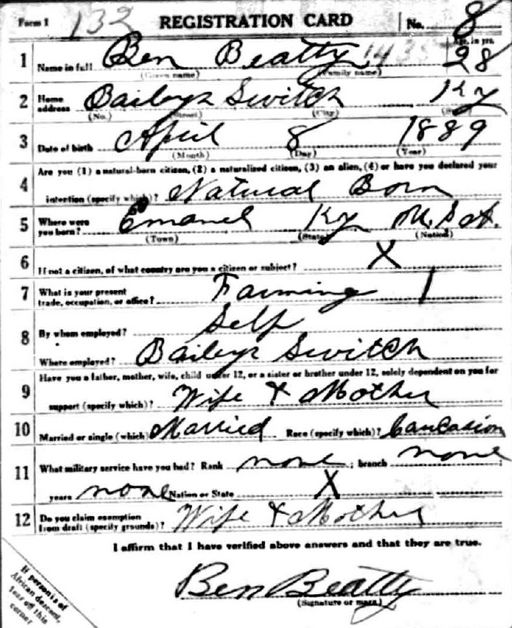 Form 1 132 REGISTRATION CARD No. 8
1 Name in full Ben Beatty 143 Age, in yrs. 28
(Given name) (Family name)
2 Home address Baileys Switch Ky
(No.) (Street) (City) (State)
3 Date of birth April 8 1889
(Month) (Day) (Year)
Are you (1) a natural-born citizen, (2) a naturalized citizen, (3) an alien, (4) or have you declared your
4 intention (specify which)? Natural Born
5 Where were you born? Emanuel Ky U.S.A.
(Town) (State) (Nation)
6 If not a citizen, of what country are you a citizen or subject? X
7 What is your present trade, occupation, or office? Farming 1
8 By whom employed? Self
Where employed? Baileys Switch
Have you a father, mother, wife, child under 12, or a sister or brother under 12, solely dependent on you for
9 support (specify which)? Wife & Mother
10 Married or single (which)? Married Race (specify which)? Caucasion
11 What military service have you had? Rank none ; branch none
years none Nation or State X
12 Do you claim exemption from draft (specify grounds)? Wife & Mother
I affirm that I have verified above answers and that they are true.
Ben Beatty
(Signature or mark)
If person is of
African descent,
tear off this
corner